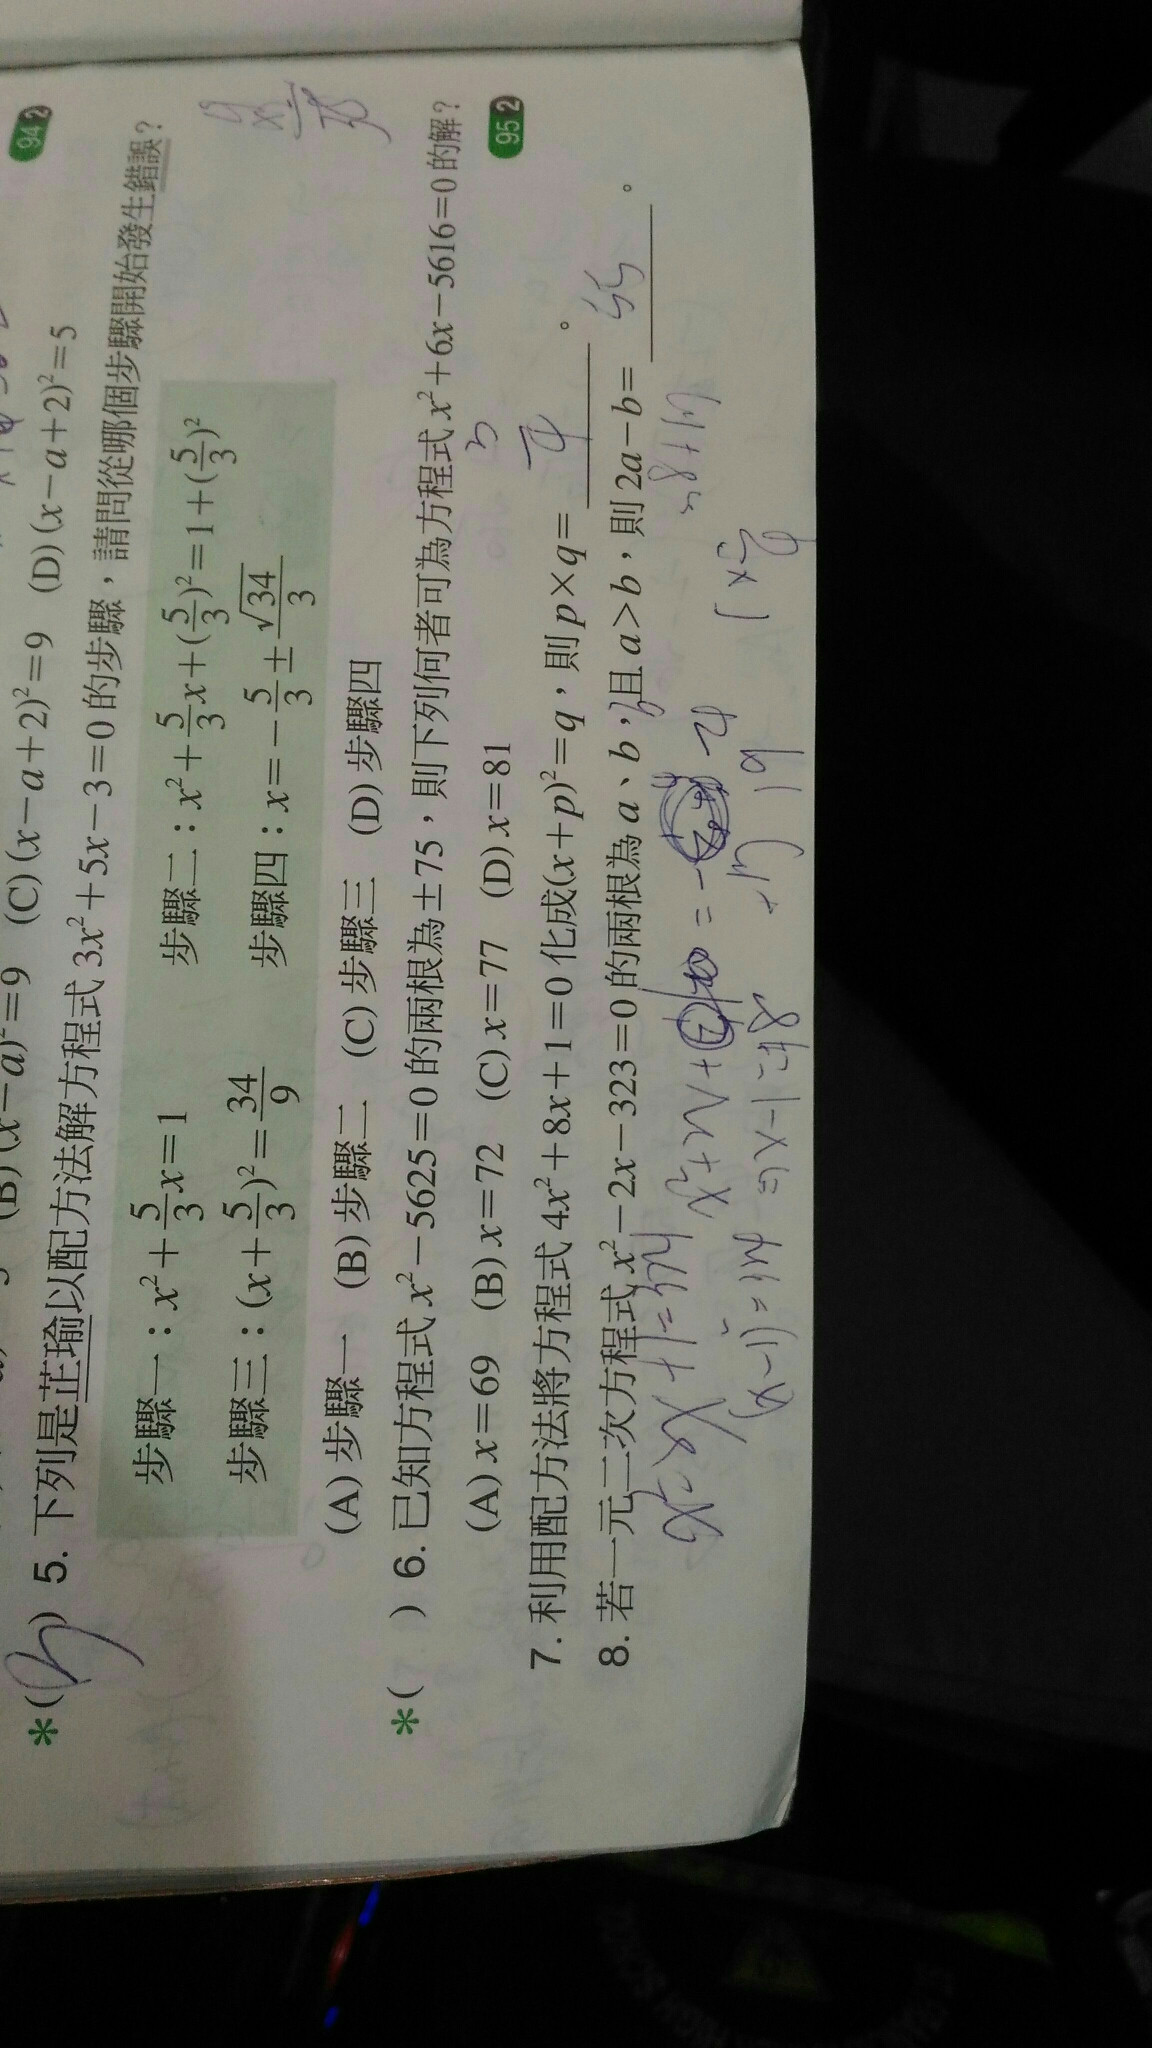 (B)(x-a)²=9 (C)(x-a+2)²=9 (D)(x-a+2)²=5
94 2
*( ) 5. 下列是芷瑜以配方法解方程式 3x²+5x-3=0 的步驟，請問從哪個步驟開始發生錯誤？
步驟一：x²+5/3x=1 步驟二：x²+5/3x+(5/3)²=1+(5/3)²
步驟三：(x+5/3)²=34/9 步驟四：x=-5/3±√34/3
(A) 步驟一 (B) 步驟二 (C) 步驟三 (D) 步驟四
*( ) 6. 已知方程式 x²-5625=0 的兩根為±75，則下列何者可為方程式 x²+6x-5616=0 的解？
(A) x=69 (B) x=72 (C) x=77 (D) x=81
95 2
7. 利用配方法將方程式 4x²+8x+1=0 化成(x+p)²=q，則 p×q= 。
8. 若一元二次方程式 x²-2x-323=0 的兩根為 a、b，且 a>b，則 2a-b= 55 。
x²-2x+1=324
(x-1)²=324 ⇒x-1=±18
19